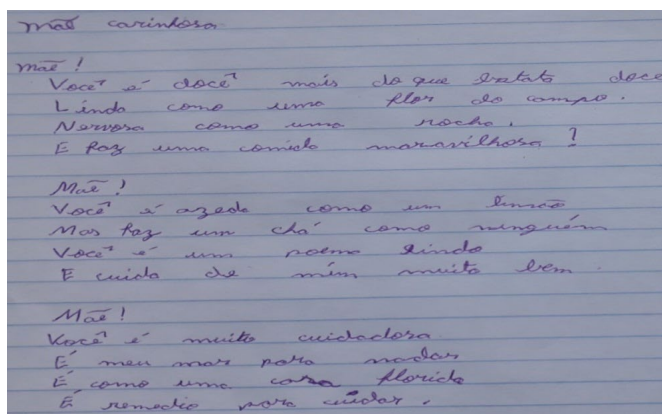 Mãe carinhosa
Mãe!
Você é doce mais do que batata doce
Linda como uma flor do campo.
Nervosa como uma rocha.
E faz uma comida maravilhosa!
Mãe!
Você é azeda como um limão
Mas faz um chá como ninguém
Você é um poema lindo
E cuida de mim muito bem.
Mãe!
Você é muito cuidadosa
É meu mar para nadar
É como uma casa florida
É remedio para cuidar.